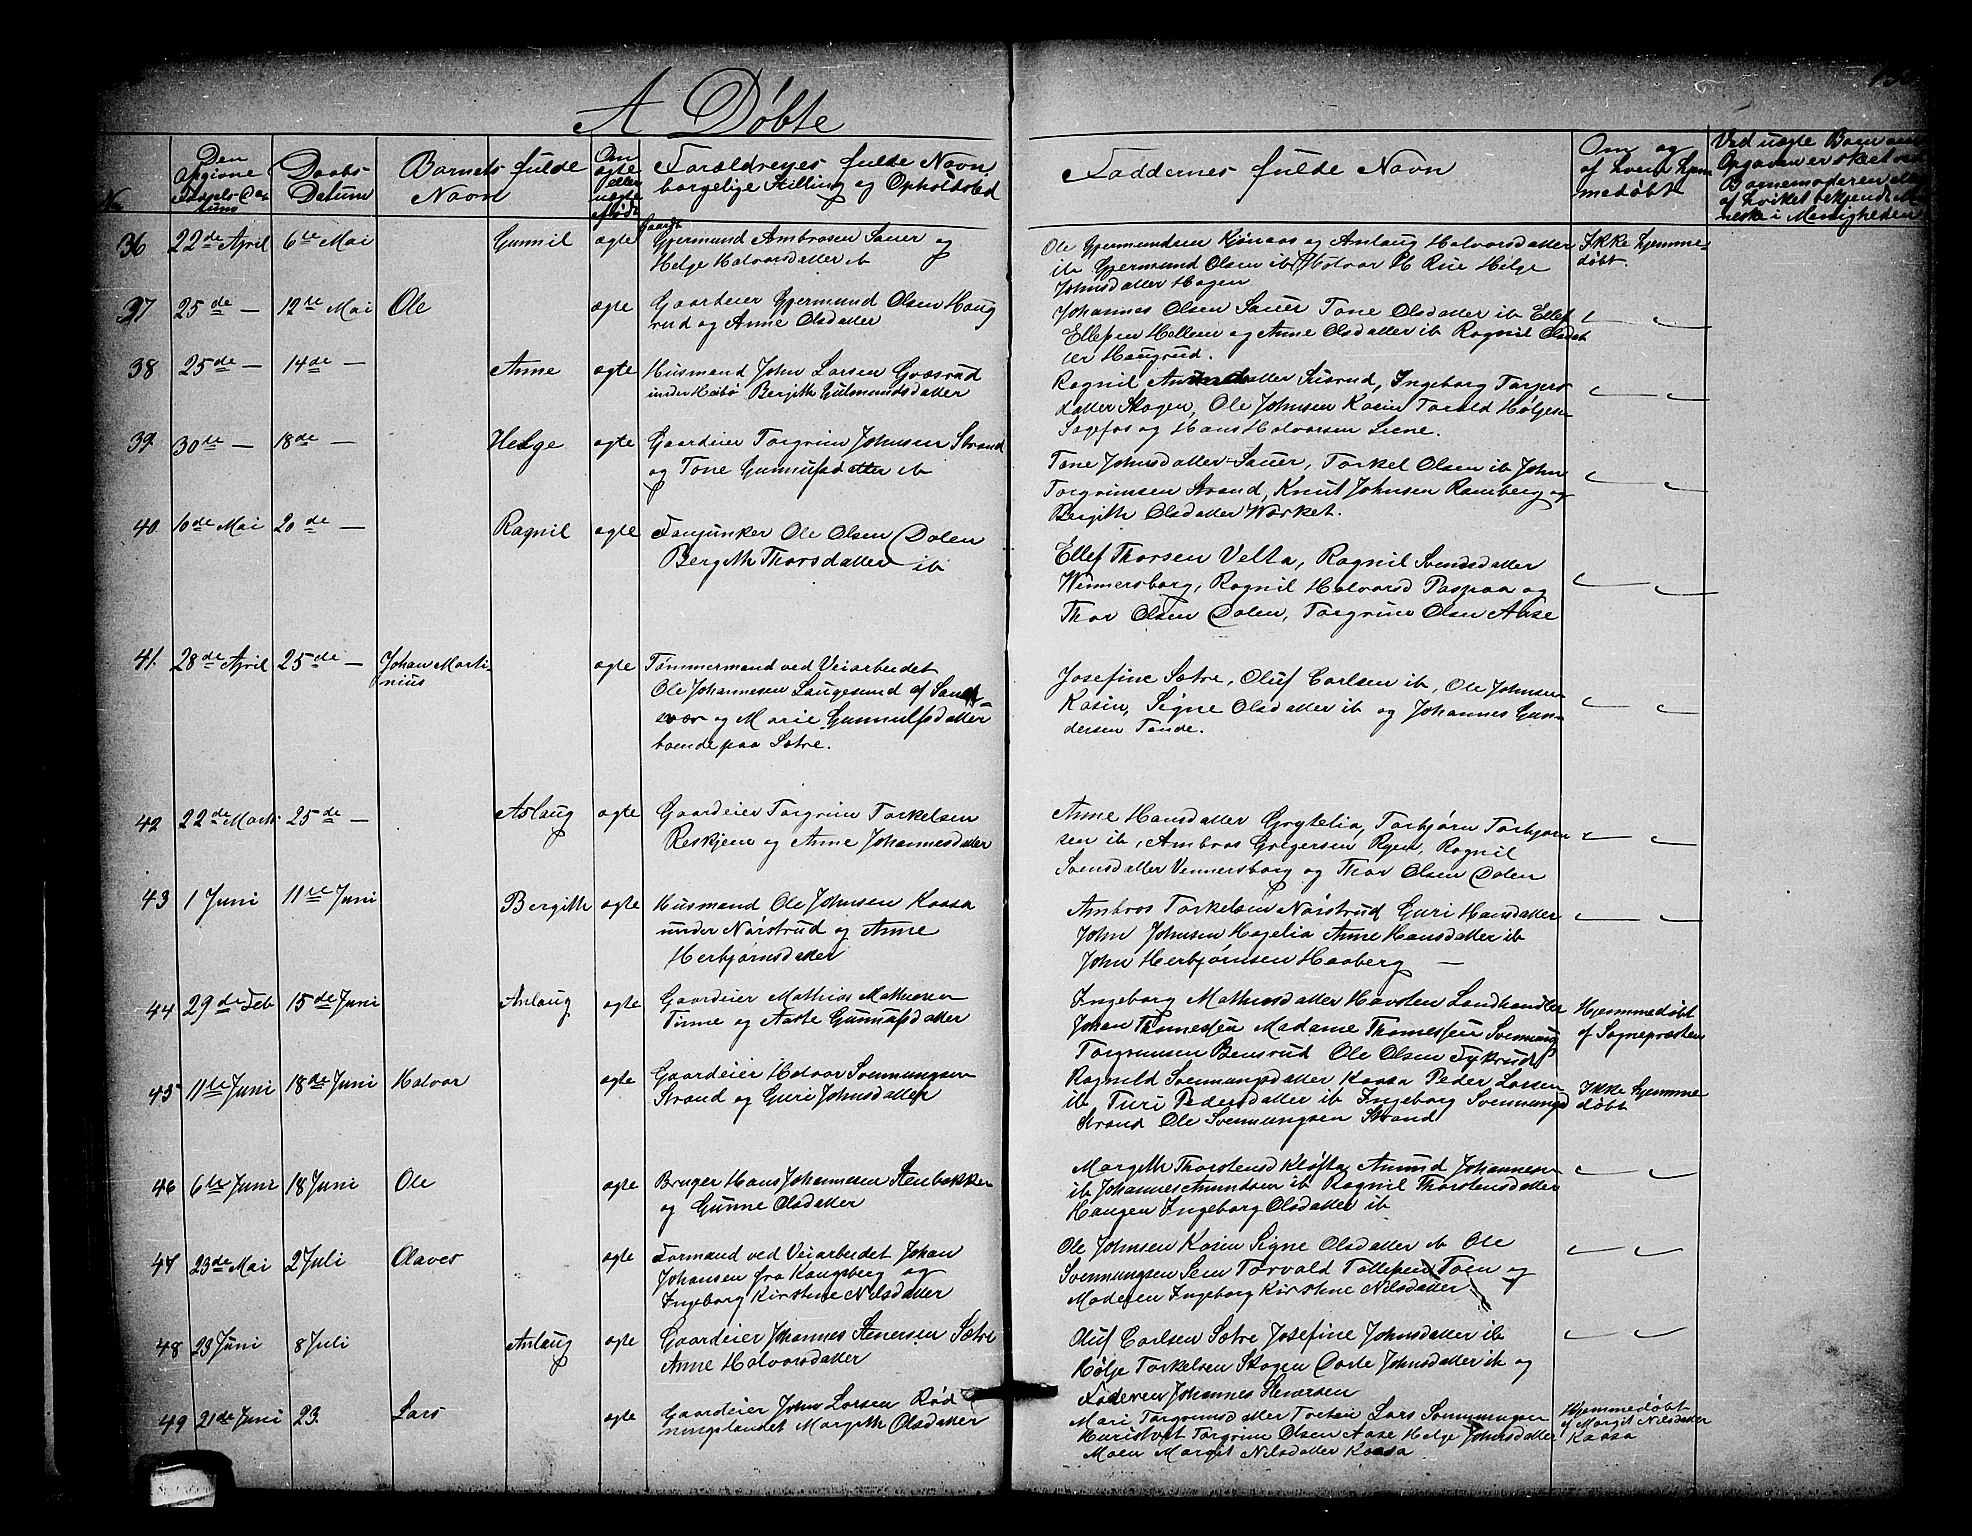 A Døbte
No
Den Opgivne Fødsels Datum
Daabs Datum
Barnets fulde Navn
Om ægte eller uægte født
Forældrenes fulde Navn, borgelige Stilling og Opholdsted
Faddernes fulde Navn
Om og af hvem hjemmedøbt
36 22de April 6te Mai Gunnil ægte Gaardr Gjermund Ambrosen Sauer og
Helge Halvorsdatter ib
Ole Gjermundsen Kjønaas og Anlaug Halvorsdatter
ib Gjermund Olsen ib Halvor P Rue Helge
Johnsdatter Hagen
Ikke hjemme-
døbt.
37 25de — 12te Mai Ole ægte Gaardeier Gjermund Olsen Haug
rud og Anne Olsdatter
Johannes Olsen Sauer Tone Olsdatter ib Ellef
Ellefsen Hellsen og Anne Olsdatter ib Ragnil Olsdat
ter Haugrud.
38 25de — 14de — Anne ægte Husmand John Larsen Græsrud
under Hæbø Bergith Gulmundsdatter
Ragnil Amundsdatter Susrud, Ingeborg Torgers
datter Skogen, Ole Johnsen Kasin Torald Hølges
Sagefos og Hans Halvorsen Liene.
39 30de — 18de — Helge ægte Gaardeier Torgrim Johnsen Strand
og Tone Gunnufsdatter ib
Tone Johnsdatter Sauer, Torkel Olsen ib John
Torgrimsen Strand, Knut Johnsen Ramberg og
Bergith Olsdatter Wærket.
40 10de Mai 20de — Ragnil ægte Fanjunker Ole Olsen Dalen
Bergith Thorsdatter ib
Ellef Thorsen Velta, Ragnil Svendsdatter
Winnersborg, Ragnil Halvorsd Paspaa og
Thor Olsen Dalen, Torgrim Olsen Aase
41 28de April 25de — Johan Marti-
nius ægte Tømmermand ved Veiarbeidet
Ole Johannesen Laugesund af Sand-
svær og Marie Gunnulfsdatter
boende paa Sætre.
Josefine Sætre, Oluf Carlsen ib, Ole Johnsen
Kasin, Signe Olsdatter ib og Johannes Gun-
dersen Tande.
42 22de Marts 25de — Aslaug ægte Gaardeier Torgrim Torkelsen
Reskjem og Anne Johannesdatter
Anne Hansdatter Grytelia, Torbjørn Torbjørn
sen ib, Ambros Gregersen Ryen, Ragnil
Svensdatter Vennersborg og Thor Olsen Dalen
43 1 Juni 11te Juni Bergith ægte Husmand Ole Johnsen Kaasa
under Nørstrud og Anne
Herbjørnsdatter
Ambros Torkelsen Nørstrud Guri Hansdatter
John Johnsen Hagelia Anne Hansdatter ib
John Herbjørnsen Haaberg —
44 29de Feb 15de Juni Anlaug ægte Gaardeier Mathias Mathiesen
Tinne og Aaste Gunnufsdatter
Ingeborg Mathiasdatter Havsten Landhandler
Johan Thomessen Madame Thomessen Svennung
Torgrimsen Bensrud Ole Olsen Tykrud
Hjemmedøbt
af Sognepræsten
45 11te Juni 18de Juni Halvor ægte Gaardeier Halvor Svennungsen
Strand og Guri Johnsdatter
Ragnild Svennungsdatter Kaasa Peder Larsen
ib Turi Pedersdatter ib Ingeborg Svennungsd
Strand Ole Svennungsen Strand
Ikke hjemme
døbt
46 6te Juni 18 Juni Ole ægte Bruger Hans Johannesen Stenbakken
og Gunne Olsdatter
Margith Thorstensd Kløfta Amund Johannesen
ib Johannes Amundsen ib Ragnil Thorstensdatter
Haugen Ingeborg Olsdatter ib
47 23de Mai 2 Juli Olaves ægte Formand ved Veiarbeidet Johan
Johansen fra Kongsberg og
Ingeborg Kirstine Nilsdatter
Ole Johnsen Kasin Signe Olsdatter ib Ole
Svennungsen Sem Torvald Tollefsen Toen og
Moderen Ingeborg Kirstine Nilsdatter
48 23 Juni 8 Juli Anlaug ægte Gaardeier Johannes Stenersen Sætre
Anne Halvorsdatter
Oluf Carlsen Sætre Josefine Johnsdatter ib
Hølje Torkelsen Skogen Dorte Johnsdatter ib og
Faderen Johannes Stenersen
49 21de Juni 23 Lars ægte Gaardeier John Larsen Rød
ningslandet Margith Olsdatter
Mari Torgrimsdatter Tveten Lars Svennungsen
Huristvet Torgrim Olsen Aase Helge Johnsdatter
Moen Margit Nilsdatter Kaasa
Hjemmedøbt
af Margit Nilsdatter
Kaasa